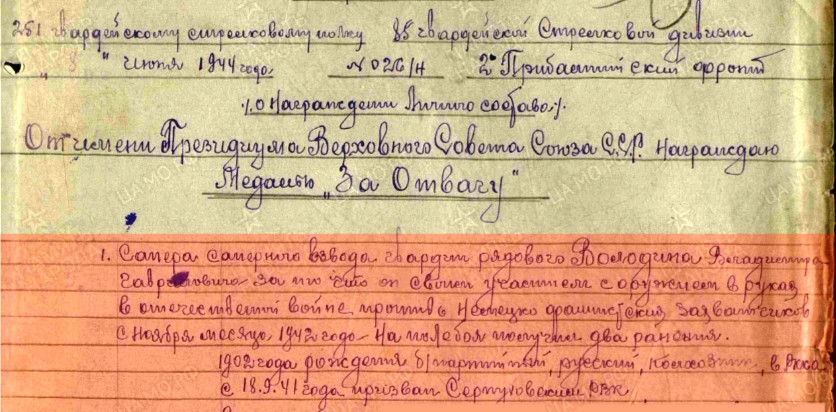 251 гвардейскому стрелковому полку 85 гвардейской Стрелковой дивизии
„ 8 " июня 1944 года. № 026/н 2й Прибалтийский фронт
%. О Награждении Личного состава %.
От имени Президиума Верховного Совета Союза С.С.Р. награждаю
Медалью „За Отвагу"
1. Сапера саперного взвода гвардии рядового Володина Владимира
за то что он своим участием с оружием в руках
в отечественной войне против Немецко фашистских захватчиков
с Ноября месяца 1942 года на поле боя получил два ранения.
1902 года рождения б/партийный, русский, колхозник, в РККА
с 18.9.41 года призван Серпуховским РВК